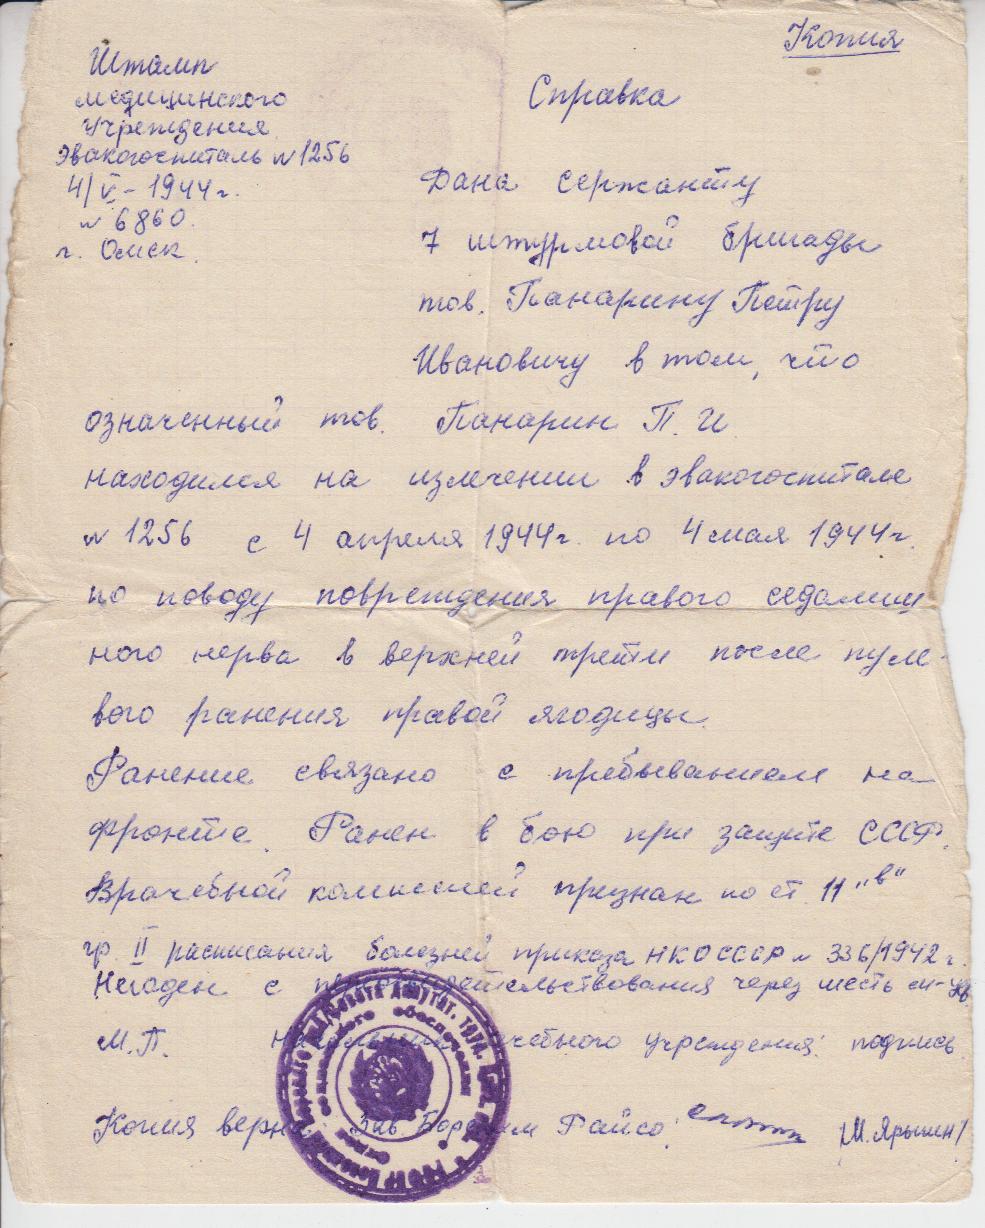 Копия
Штамп
медицинского
учреждения
эвакогоспиталь №1256
4/V - 1944 г.
№ 6860.
г. Омск.
Справка
Дана сержанту
7 штурмовой бригады
тов. Панарину Петру
Ивановичу в том, что
означенный тов. Панарин П. И
находился на излечении в эвакогоспитале
№ 1256 с 4 апреля 1944 г. по 4 мая 1944 г.
по поводу повреждения правого седалищ
ного нерва в верхней трети после пуле-
вого ранения правой ягодицы.
Ранение связано с пребыванием на
фронте. Ранен в бою при защите СССР.
Врачебной комиссией признан по ст. 11 "в"
гр. II расписания болезней приказа НКО СССР № 336/1942 г.
Негоден с через шесть м-цев
М.П. учреждения: подпись
Копия верна Зав Райсо: /М. Ярыгин/